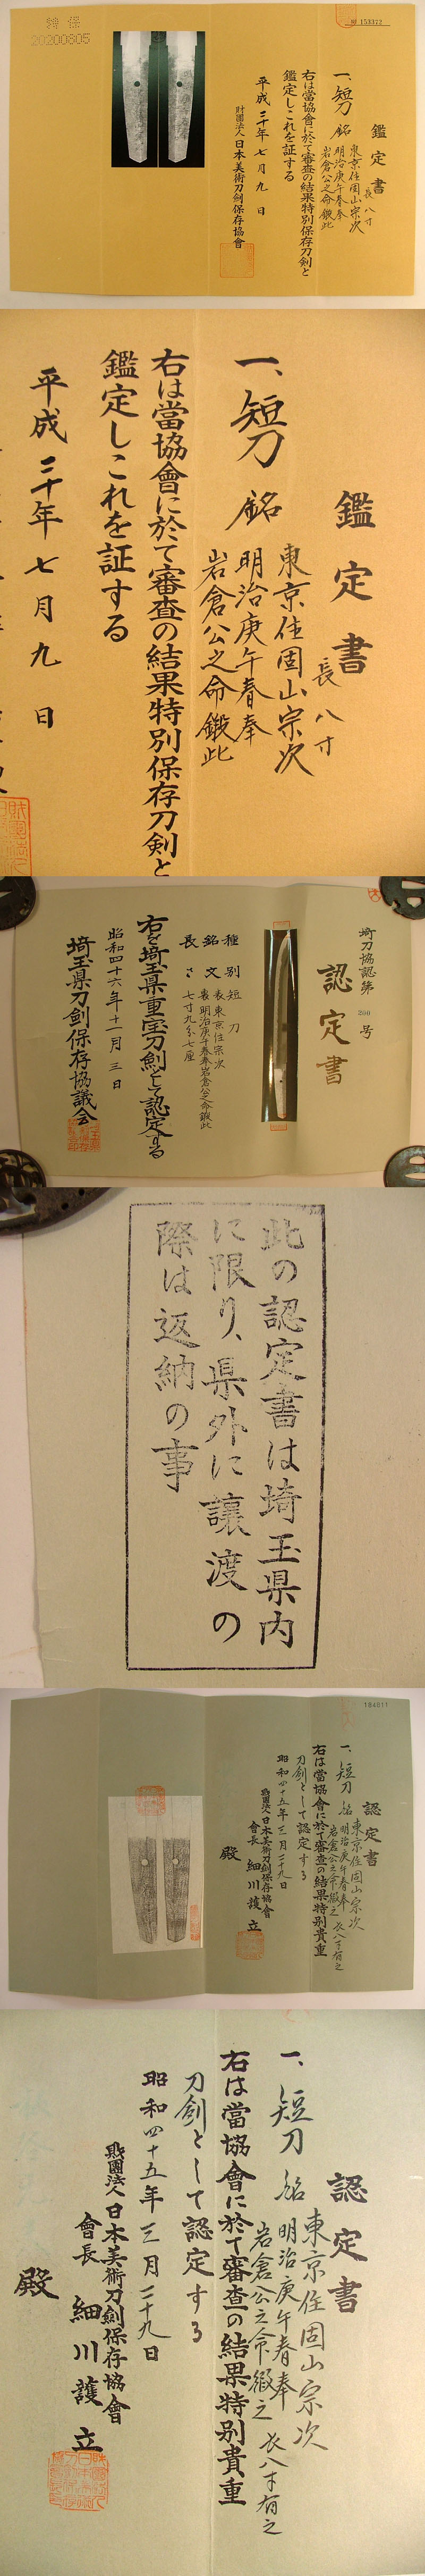 特保
20200805
№ 153372
鑑定書
一、短刀 銘 東京住固山宗次
明治庚午春奉
岩倉公之命鍛此
長八寸
右は當協會に於て審査の結果特別保存刀剣と
鑑定しこれを証する
平成二十年七月九日
財團法人日本美術刀剣保存協會
鑑定書
長八寸
一、短刀 銘 東京住固山宗次
明治庚午春奉
岩倉公之命鍛此
右は當協會に於て審査の結果特別保存刀剣と
鑑定しこれを証する
平成二十年七月九日
埼刀協認第 260 号
認定書
種別 短刀
銘文 表東京住宗次
裏明治庚午春奉岩倉公之命鍛此
長さ 七寸九分七厘
右を埼玉県重宝刀剣として認定する
昭和四十六年十一月三日
埼玉県刀剣保存協議会
此の認定書は埼玉県内
に限り、県外に譲渡の
際は返納の事
184011
認定書
一、短刀 銘 東京住固山宗次
明治庚午春奉
岩倉公之命鍛之 長八寸有之
右は當協會に於て審査の結果特別貴重
刀剣として認定する
昭和四十五年三月二十九日
財團法人日本美術刀剣保存協會
會長 細川護立
殿
認定書
一、短刀 銘 東京住固山宗次
明治庚午春奉
岩倉公之命鍛之 長八寸有之
右は當協會に於て審査の結果特別貴重
刀剣として認定する
昭和四十五年三月二十九日
財團法人日本美術刀剣保存協會
會長 細川護立
殿